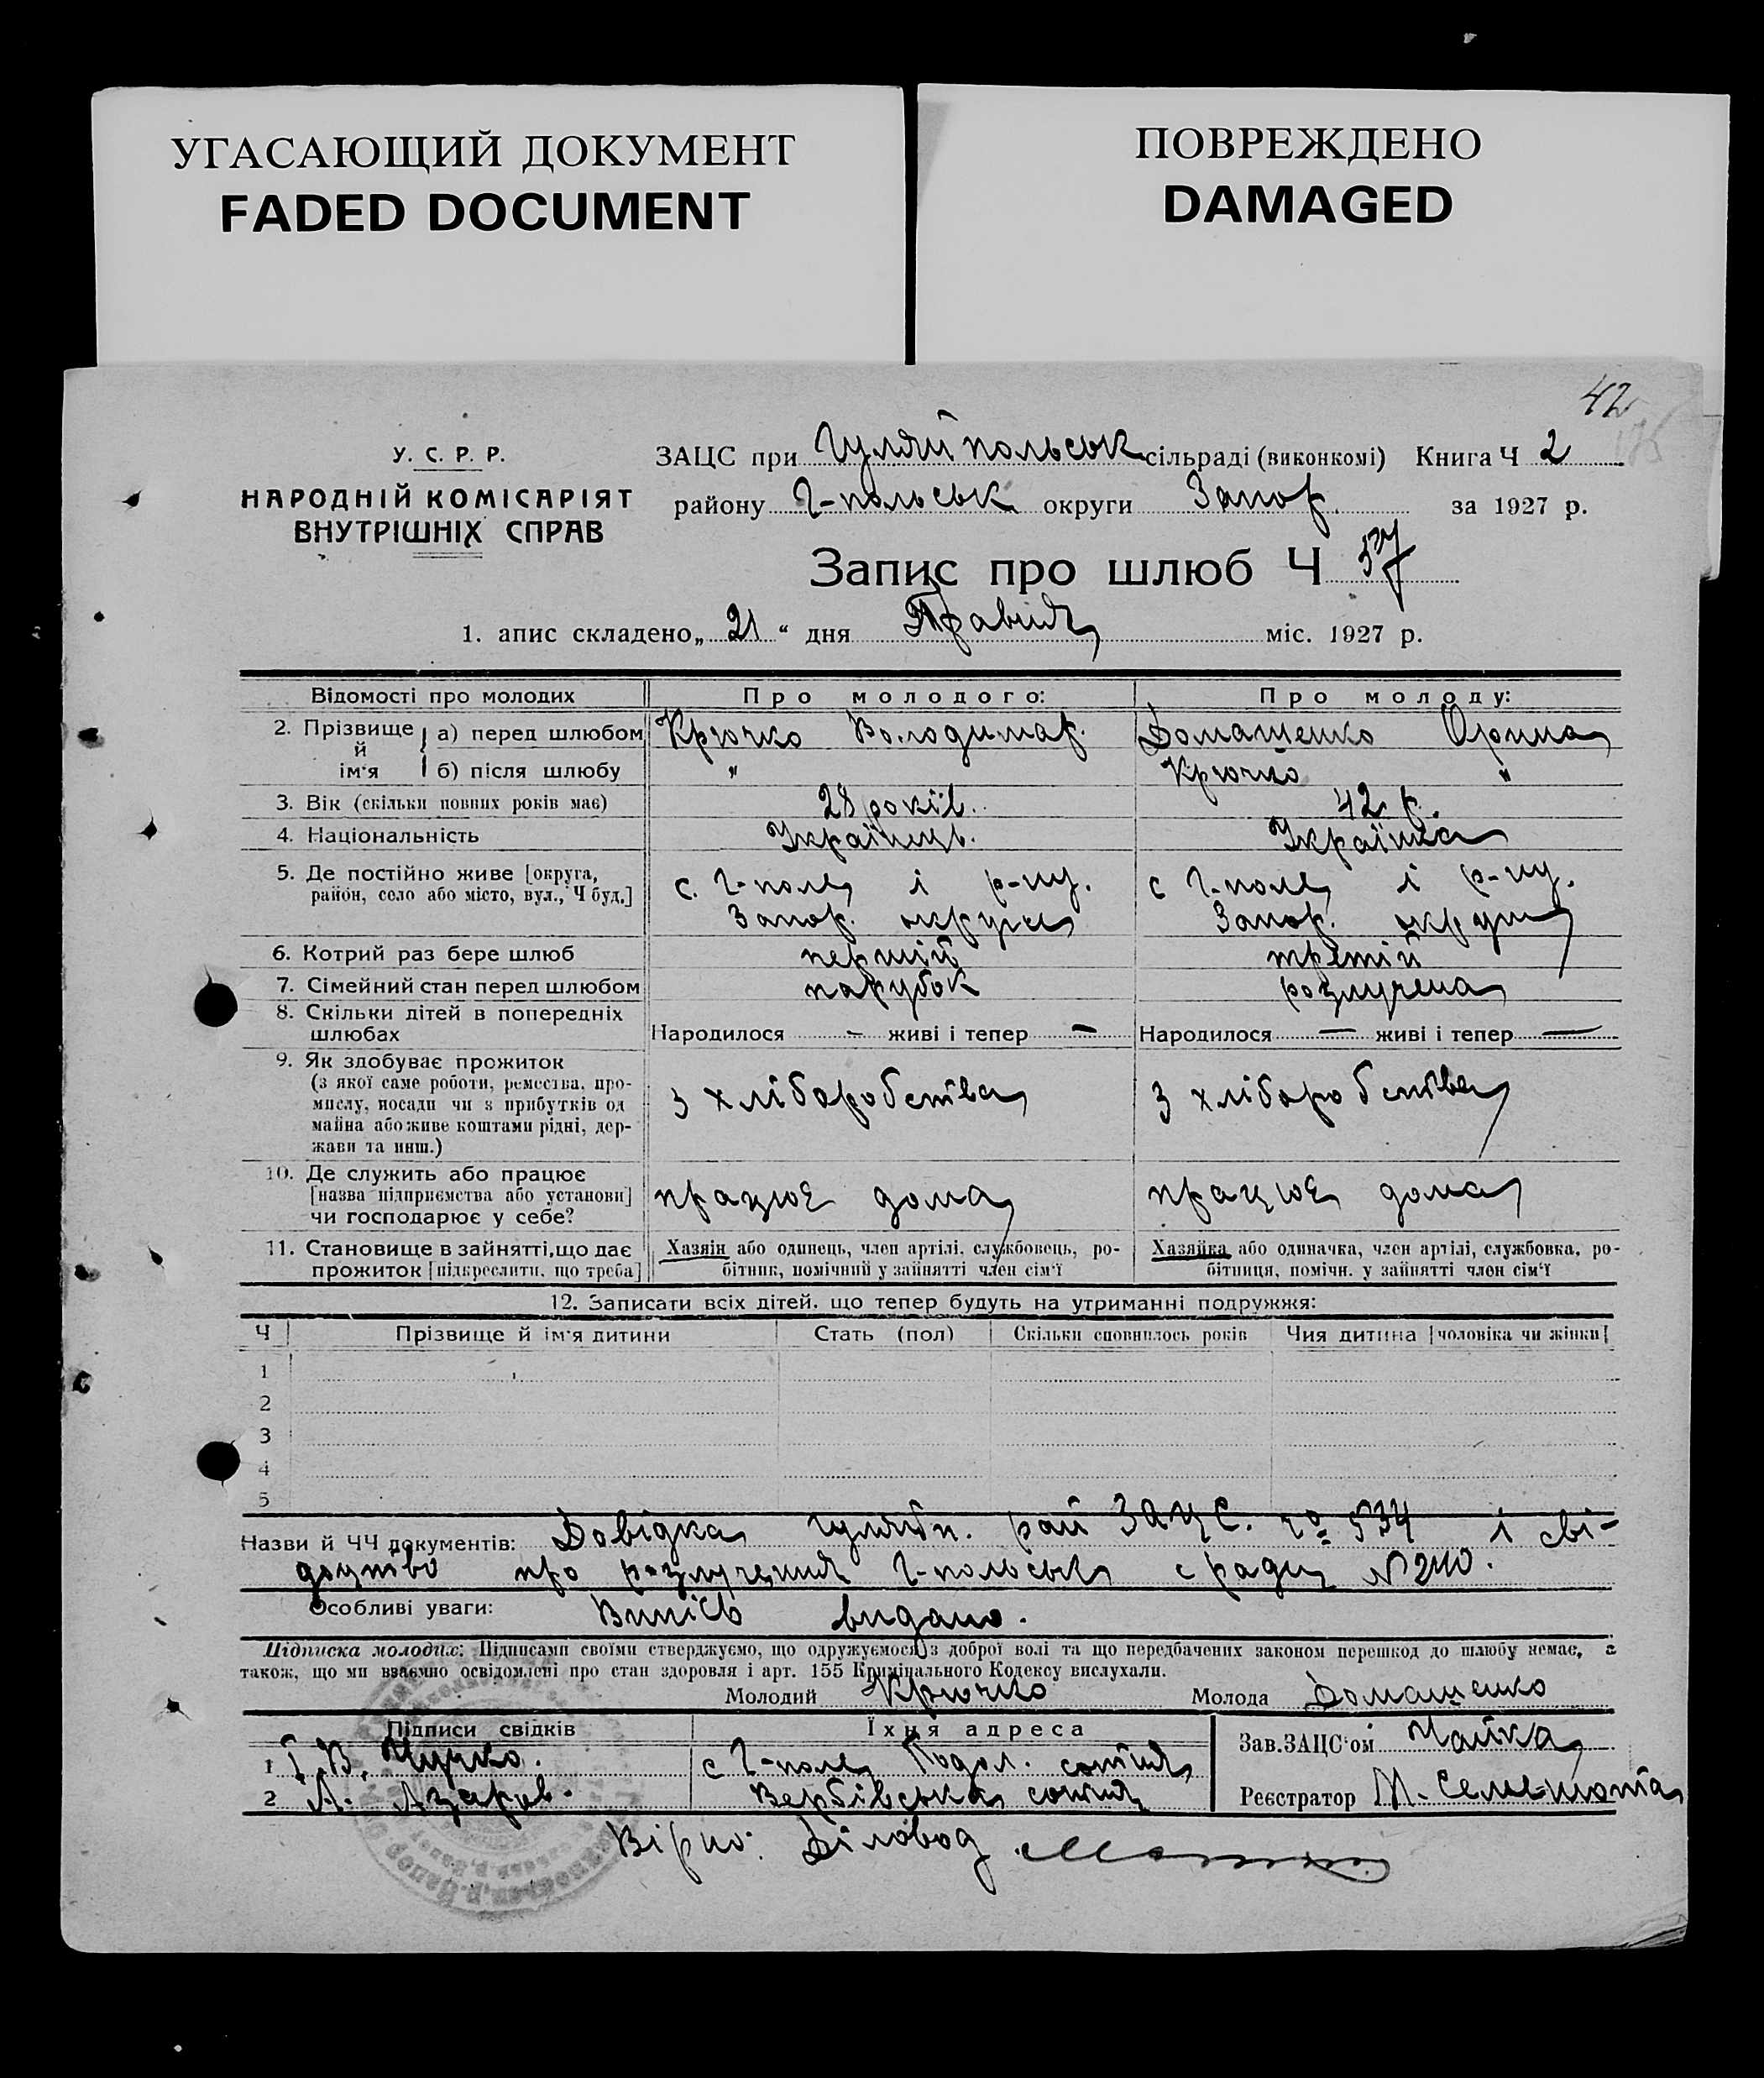 УГАСАЮЩИЙ ДОКУМЕНТ
FADED DOCUMENT
ПОВРЕЖДЕНО
DAMAGED
42
У. С. Р. Р.
НАРОДНІЙ КОМІСАРІЯТ
ВНУТРІШНІХ СПРАВ
ЗАЦС при Гуляйпольськ сільраді (виконкомі) Книга Ч 2
району Г-польськ округи Запор. за 1927 р.
Запис про шлюб Ч 57
1. апис складено „ 21 “ дня Травня міс. 1927 р.
Відомості про молодих Про молодого: Про молоду:
2. Прізвище й ім'я а) перед шлюбом Крючко Володимар. Домашенко Орина
б) після шлюбу " Крючко "
3. Вік (скільки повних років має) 28 років. 42 р.
4. Національність Українець. Українка
5. Де постійно живе [округа, район, село або місто, вул., Ч буд.] с. Г-поле і р-ну. с Г-поле і р-ну.
Запор. округи Запор. округи
6. Котрий раз бере шлюб перший третій
7. Сімейний стан перед шлюбом парубок розлучена
8. Скільки дітей в попередніх шлюбах Народилося – живі і тепер – Народилося — живі і тепер —
9. Як здобуває прожиток
(з якої саме роботи, ремества, про-
мислу, посади чи з прибутків од
майна або живе коштами рідні, дер-
жави та инш.) з хліборобства з хліборобства
10. Де служить або працює
[назва підприємства або установи]
чи господарює у себе? працює дома працює дома
11. Становище в зайнятті, що дає
прожиток [підкреслити, що треба]
Хазяїн або одинець, член артілі, службовець, ро-
бітник, помічний у зайнятті член сім'ї
Хазяйка або одиначка, член артілі, службовка, ро-
бітниця, помічн. у зайнятті член сім'ї
12. Записати всіх дітей, що тепер будуть на утриманні подружжя:
Ч Прізвище й ім'я дитини Стать (пол) Скільки сповнилось років Чия дитина [чоловіка чи жінки]
1
2
3
4
5
Назви й ЧЧ документів: Довідка Гуляйп. рай ЗАЦС. № 534 і сві-
доцтво про розлучення Г-польськ с ради № 240.
Особливі уваги: Випісь видано.
Підписка молодих: Підписами своїми стверджуємо, що одружуємося з доброї волі та що передбачених законом перешкод до шлюбу немає, а
також, що ми взаємно освідомлені про стан здоровля і арт. 155 Кримінального Кодексу вислухали.
Молодий Крючко Молода Домашенко
Підписи свідків Їхня адреса
1 с Г-поле Подол. сотня
2 А. Азаров. Вербівська сотня
Зав. ЗАЦС'ом Чайка
Реєстратор
Вірно: Діловод